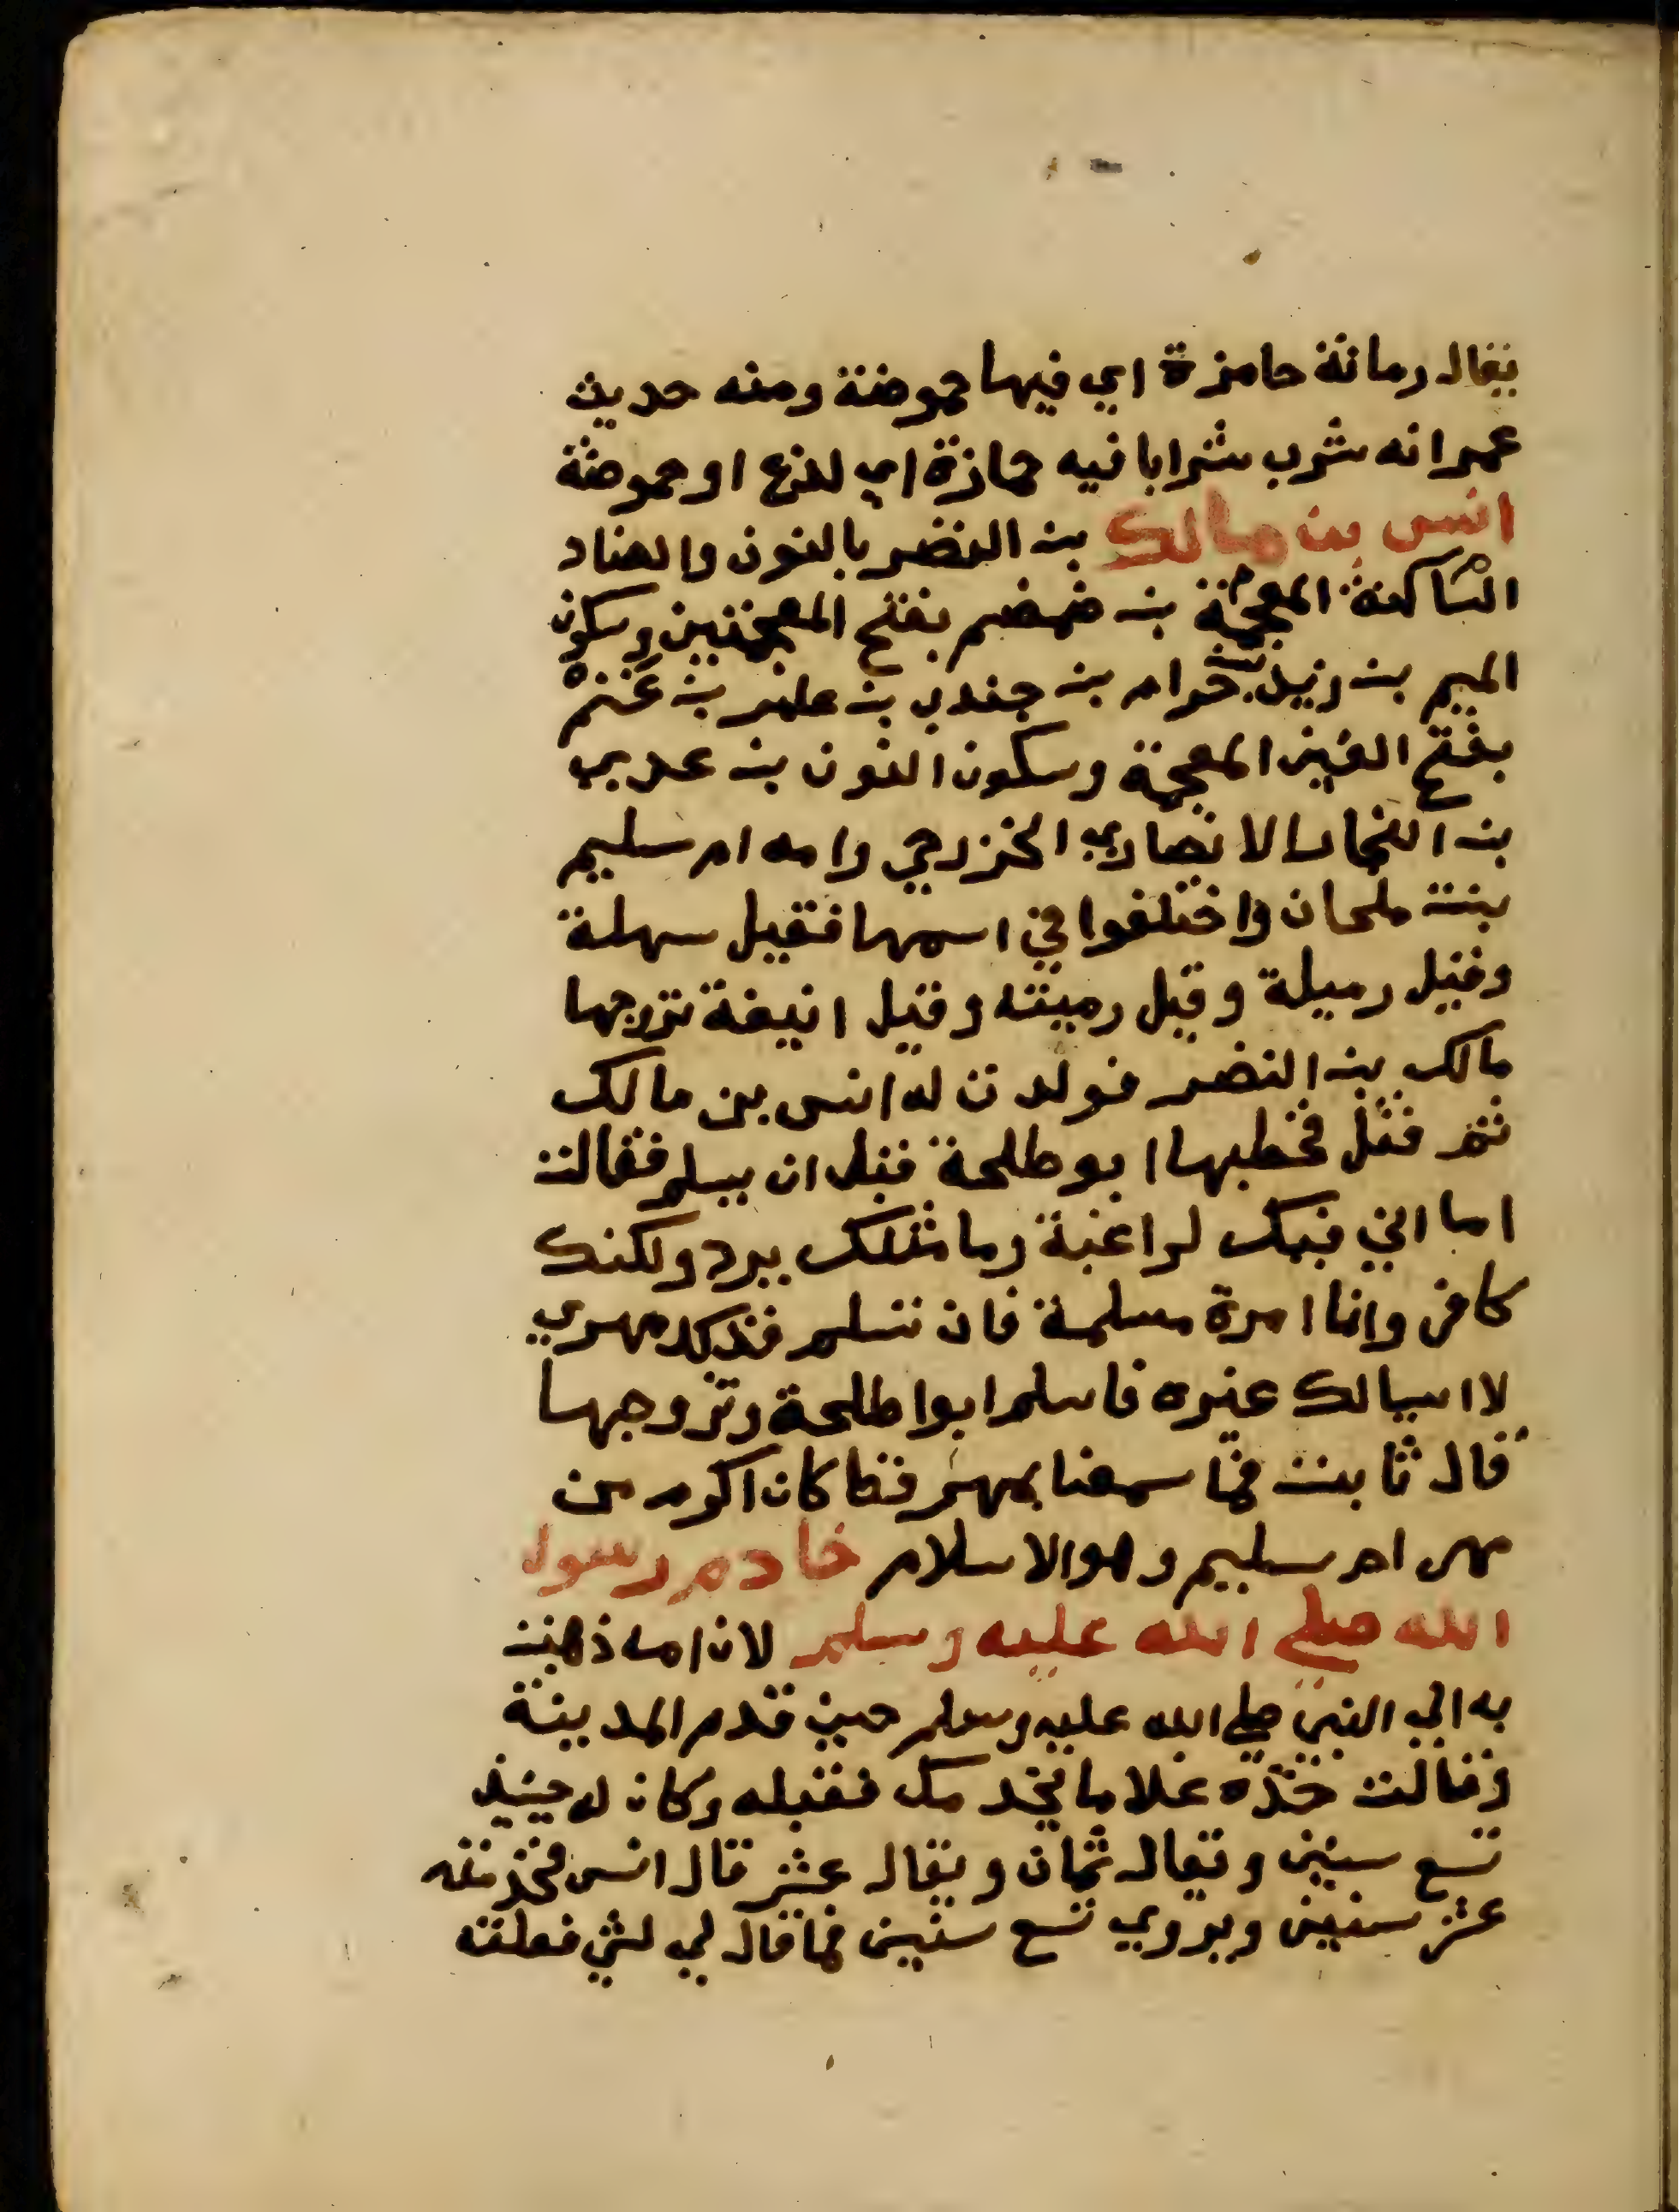 يقال رمانة حامزة اي فيها حموضة ومنه حديث
عمر انه شرب شرابا فيه حمازة اي لذع او حموضة
انس بن مالك بن النضر بالنون والضاد
الساكنة المعجمة بن ضمضم بفتح المعجمتين وسكون
الميم بن زيد بن حرام بن جندب بن عامر بن غَنْم
بفتح الغين المعجمة وسكون النون بن عدي
بن النجار الانصاري الخزرجي وامه ام سليم
بنت ملحان واختلفوا في اسمها فقيل سهلة
وقيل رميلة وقيل رميثه وقيل انيفة تزوجها
مالك بن النضر فولدت له انس بن مالك
ثم قتل فخطبها ابو طلحة قبل ان يسلم فقالت
اما اني فيك لراغبة وما مثلك يرد ولكنك
كافر وانا امرة مسلمة فان تسلم فذلك مهري
لا اسالك غيره فاسلم ابوا طلحة وتزوجها
قال ثابت فما سمعنا بمهر قط كان اكرم من
مهر ام سليم وهو الاسلام خادم رسول
الله صلي الله عليه وسلم لان امه ذهبت
به الي النبي صلي الله عليه وسلم حين قدم المدينة
وقالت خذه غلاما يخدمك فقبله وكان له حينيذ
تسع سنين ويقال ثمان ويقال عشر قال انس فخدمته
عشر سنين ويروي تسع سنين فما قال لي لشي فعلته